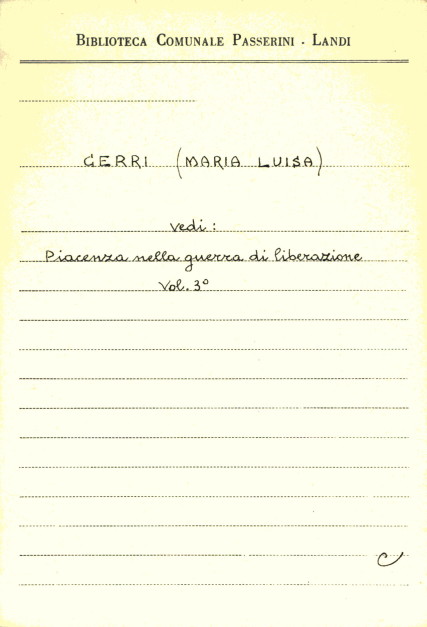 BIBLIOTECA COMUNALE PASSERINI - LANDI
GERRI (MARIA LUISA)
vedi:
Piacenza nella guerra di liberazione
Vol. 3°
C